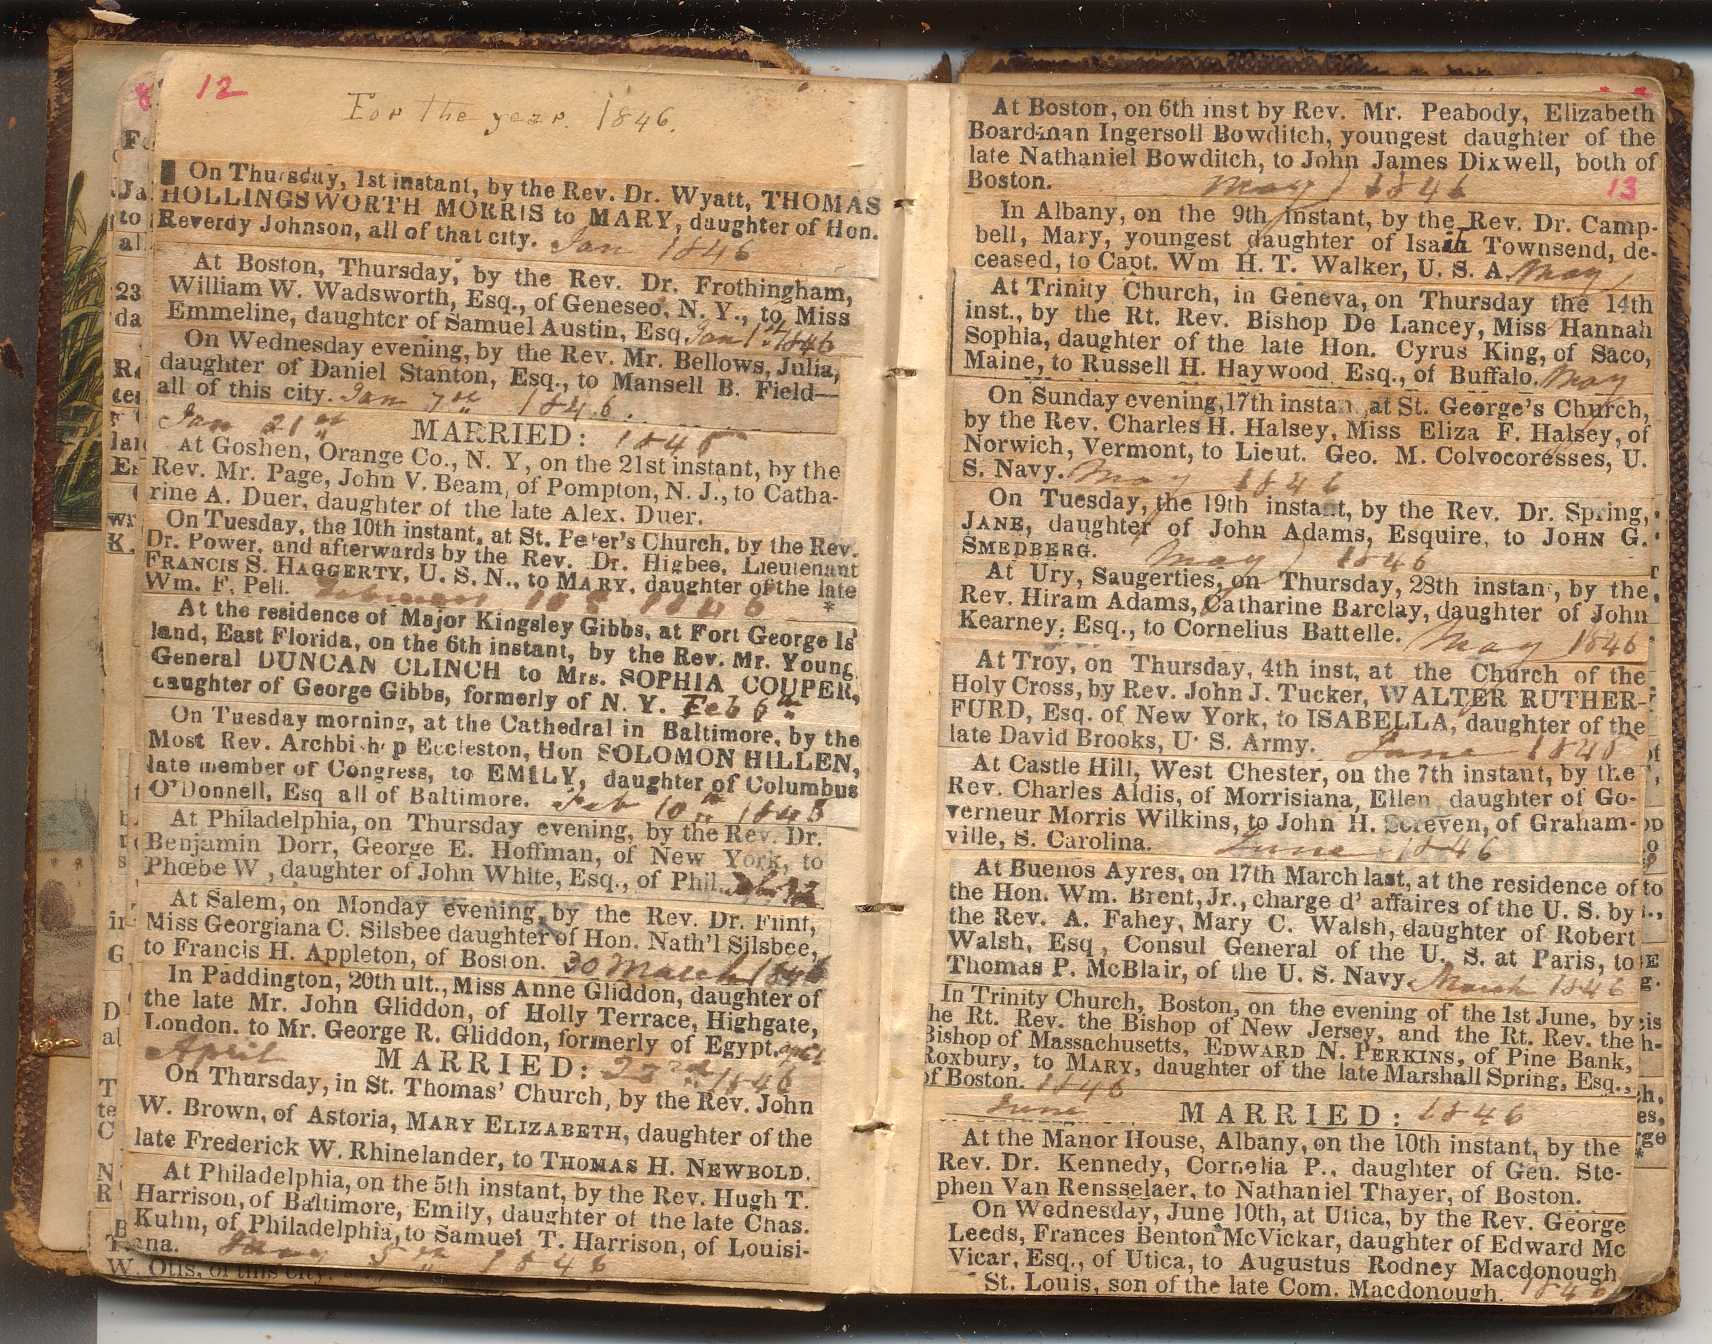 12
For the year. 1846.
On Thursday, 1st instant, by the Rev. Dr. Wyatt, THOMAS
HOLLINGSWORTH MORRIS to MARY, daughter of Hon.
Reverdy Johnson, all of that city. Jan 1846
At Boston, Thursday, by the Rev. Dr. Frothingham,
William W. Wadsworth, Esq., of Geneseo, N. Y., to Miss
Emmeline, daughter of Samuel Austin, Esq. Jan 1st 1846
On Wednesday evening, by the Rev. Mr. Bellows, Julia,
daughter of Daniel Stanton, Esq., to Mansell B. Field—
all of this city. Jan 7th 1846.
Jan 21st MARRIED: 1845
At Goshen, Orange Co., N. Y, on the 21st instant, by the
Rev. Mr. Page, John V. Beam, of Pompton, N. J., to Catha-
rine A. Duer, daughter of the late Alex. Duer.
On Tuesday, the 10th instant, at St. Peter's Church, by the Rev.
Dr. Power, and afterwards by the Rev. Dr. Higbee, Lieutenant
FRANCIS S. HAGGERTY, U. S. N., to MARY, daughter of the late
Wm. F. Pell. February 10th 1846 *
At the residence of Major Kingsley Gibbs, at Fort George Is'
land, East Florida, on the 6th instant, by the Rev. Mr. Young
General DUNCAN CLINCH to Mrs. SOPHIA COUPER,
daughter of George Gibbs, formerly of N. Y. Feb 6th
On Tuesday morning, at the Cathedral in Baltimore, by the
Most Rev. Archbishop Eccleston, Hon SOLOMON HILLEN,
late member of Congress, to EMILY, daughter of Columbus
O'Donnell, Esq all of Baltimore. Feb 10th 1845
At Philadelphia, on Thursday evening, by the Rev. Dr.
Benjamin Dorr, George E. Hoffman, of New York, to
Phœbe W , daughter of John White, Esq., of Phil.
At Salem, on Monday evening, by the Rev. Dr. Flint,
Miss Georgiana C. Silsbee daughter of Hon. Nath'l Silsbee,
to Francis H. Appleton, of Boston. 30 March 1846
In Paddington, 20th ult., Miss Anne Gliddon, daughter of
the late Mr. John Gliddon, of Holly Terrace, Highgate,
London. to Mr. George R. Gliddon, formerly of Egypt.
April MARRIED: 22nd 1846
On Thursday, in St. Thomas' Church, by the Rev. John
W. Brown, of Astoria, MARY ELIZABETH, daughter of the
late Frederick W. Rhinelander, to THOMAS H. NEWBOLD.
At Philadelphia, on the 5th instant, by the Rev. Hugh T.
Harrison, of Baltimore, Emily, daughter of the late Chas.
Kuhn, of Philadelphia, to Samuel T. Harrison, of Louisi-
ana. 5th 1846
W. Otis, of this city.
At Boston, on 6th inst by Rev. Mr. Peabody, Elizabeth
Boardman Ingersoll Bowditch, youngest daughter of the
late Nathaniel Bowditch, to John James Dixwell, both of
Boston. May 1846 13
In Albany, on the 9th instant, by the Rev. Dr. Camp-
bell, Mary, youngest daughter of Isaih Townsend, de-
ceased, to Capt. Wm H. T. Walker, U. S. A. May
At Trinity Church, in Geneva, on Thursday the 14th
inst., by the Rt. Rev. Bishop De Lancey, Miss Hannah
Sophia, daughter of the late Hon. Cyrus King, of Saco,
Maine, to Russell H. Haywood Esq., of Buffalo. May
On Sunday evening, 17th instan at St. George's Church,
by the Rev. Charles H. Halsey, Miss Eliza F. Halsey, of
Norwich, Vermont, to Lieut. Geo. M. Colvocoresses, U.
S. Navy. May 1846
On Tuesday, the 19th instant, by the Rev. Dr. Spring,
JANE, daughter of John Adams, Esquire, to JOHN G.
SMEDBERG. May 1846
At Ury, Saugerties, on Thursday, 28th instant, by the
Rev. Hiram Adams, Catharine Barclay, daughter of John
Kearney, Esq., to Cornelius Battelle. May 1846
At Troy, on Thursday, 4th inst, at the Church of the
Holy Cross, by Rev. John J. Tucker, WALTER RUTHER-
FURD, Esq. of New York, to ISABELLA, daughter of the
late David Brooks, U. S. Army. June 1845
At Castle Hill, West Chester, on the 7th instant, by the
Rev. Charles Aldis, of Morrisiana, Ellen daughter of Go-
verneur Morris Wilkins, to John H. Screven, of Graham-
ville, S. Carolina. June 1846
At Buenos Ayres, on 17th March last, at the residence of
the Hon. Wm. Brent, Jr., charge d' affaires of the U. S. by
the Rev. A. Fahey, Mary C. Walsh, daughter of Robert
Walsh, Esq, Consul General of the U. S. at Paris, to
Thomas P. McBlair, of the U. S. Navy. March 1846
In Trinity Church, Boston, on the evening of the 1st June, by
he Rt. Rev. the Bishop of New Jersey, and the Rt. Rev. the
Bishop of Massachusetts, EDWARD N. PERKINS, of Pine Bank,
Roxbury, to MARY, daughter of the late Marshall Spring, Esq.,
of Boston. 1846
June MARRIED: 1846
At the Manor House, Albany, on the 10th instant, by the
Rev. Dr. Kennedy, Cornelia P., daughter of Gen. Ste-
phen Van Rensselaer, to Nathaniel Thayer, of Boston.
On Wednesday, June 10th, at Utica, by the Rev. George
Leeds, Frances Benton McVickar, daughter of Edward Mc
Vicar, Esq., of Utica, to Augustus Rodney Macdonough
St. Louis, son of the late Com. Macdonough. 1846